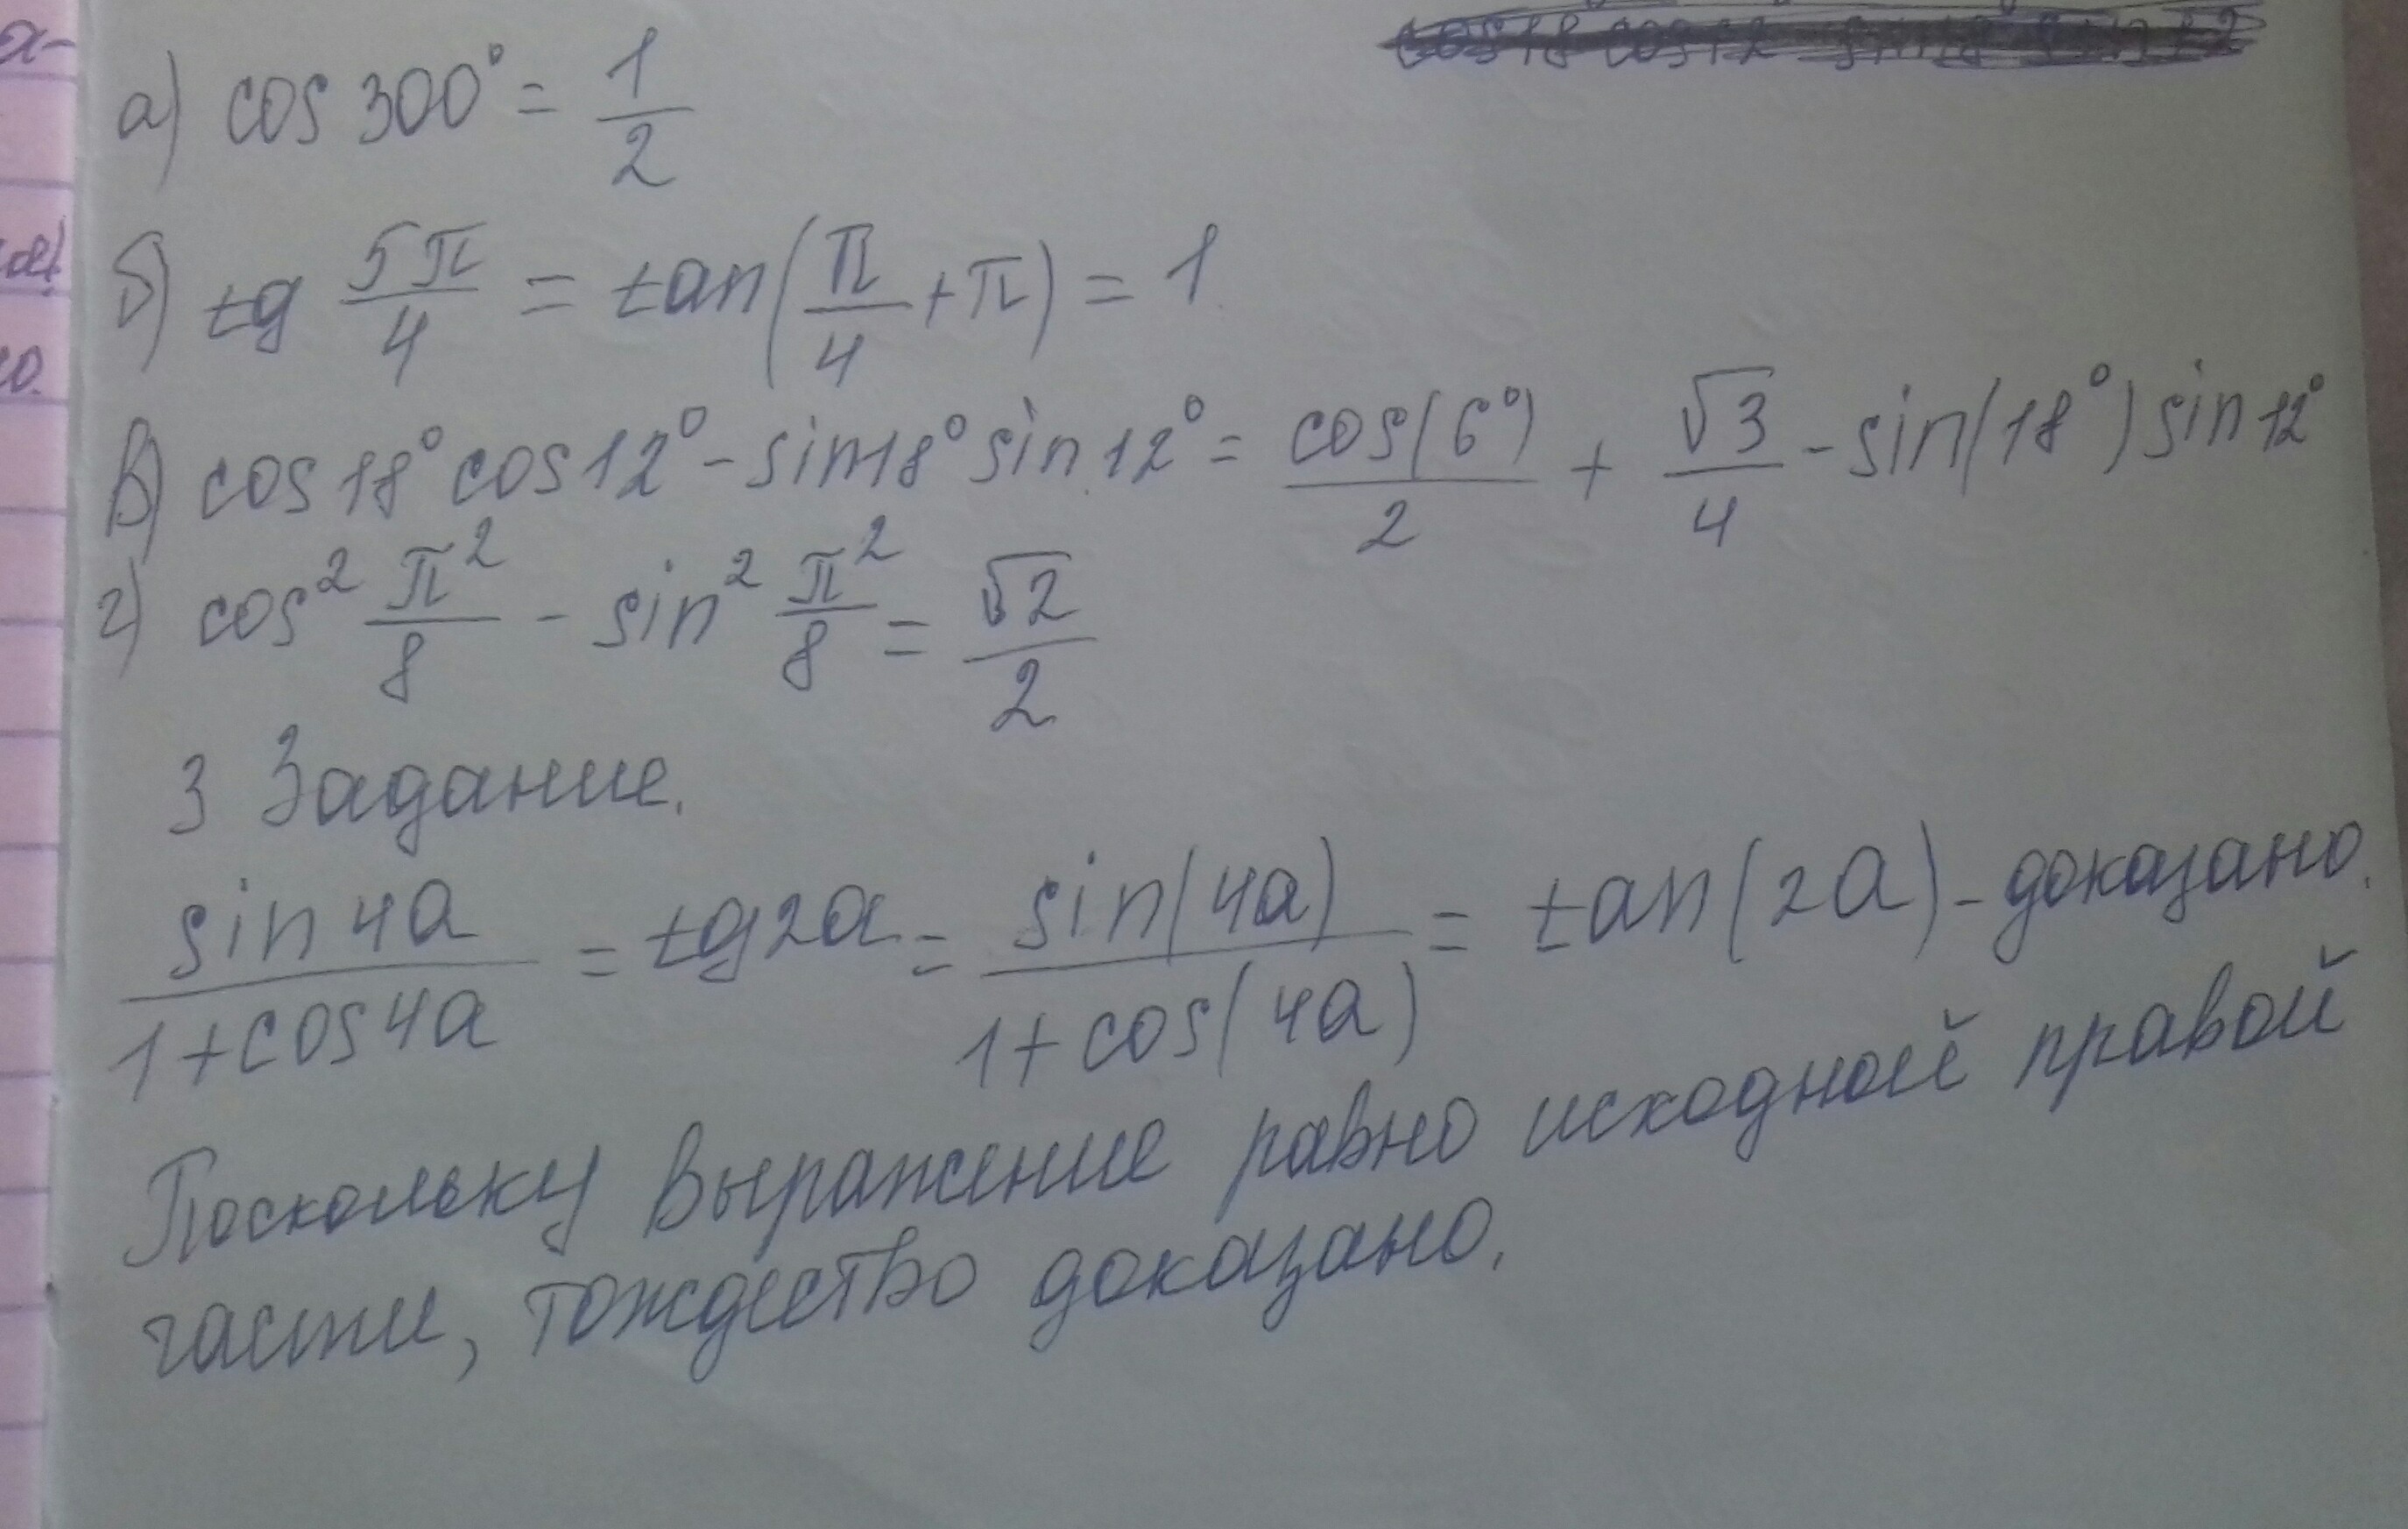 cos18 cos12 - sin18 sin12
а) cos 300° = 1/2
б) tg 5π/4 = tan(π/4 + π) = 1
в) cos 18° cos 12° - sin 18° sin 12° = cos(6°)/2 + √3/4 - sin(18°) sin 12°
г) cos² π²/8 - sin² π²/8 = √2/2
3 Задание.
sin 4a/1 + cos 4a = tg 2a = sin(4a)/1 + cos(4a) = tan(2a) - доказано.
Поскольку выражение равно исходной правой
части, тождество доказано.